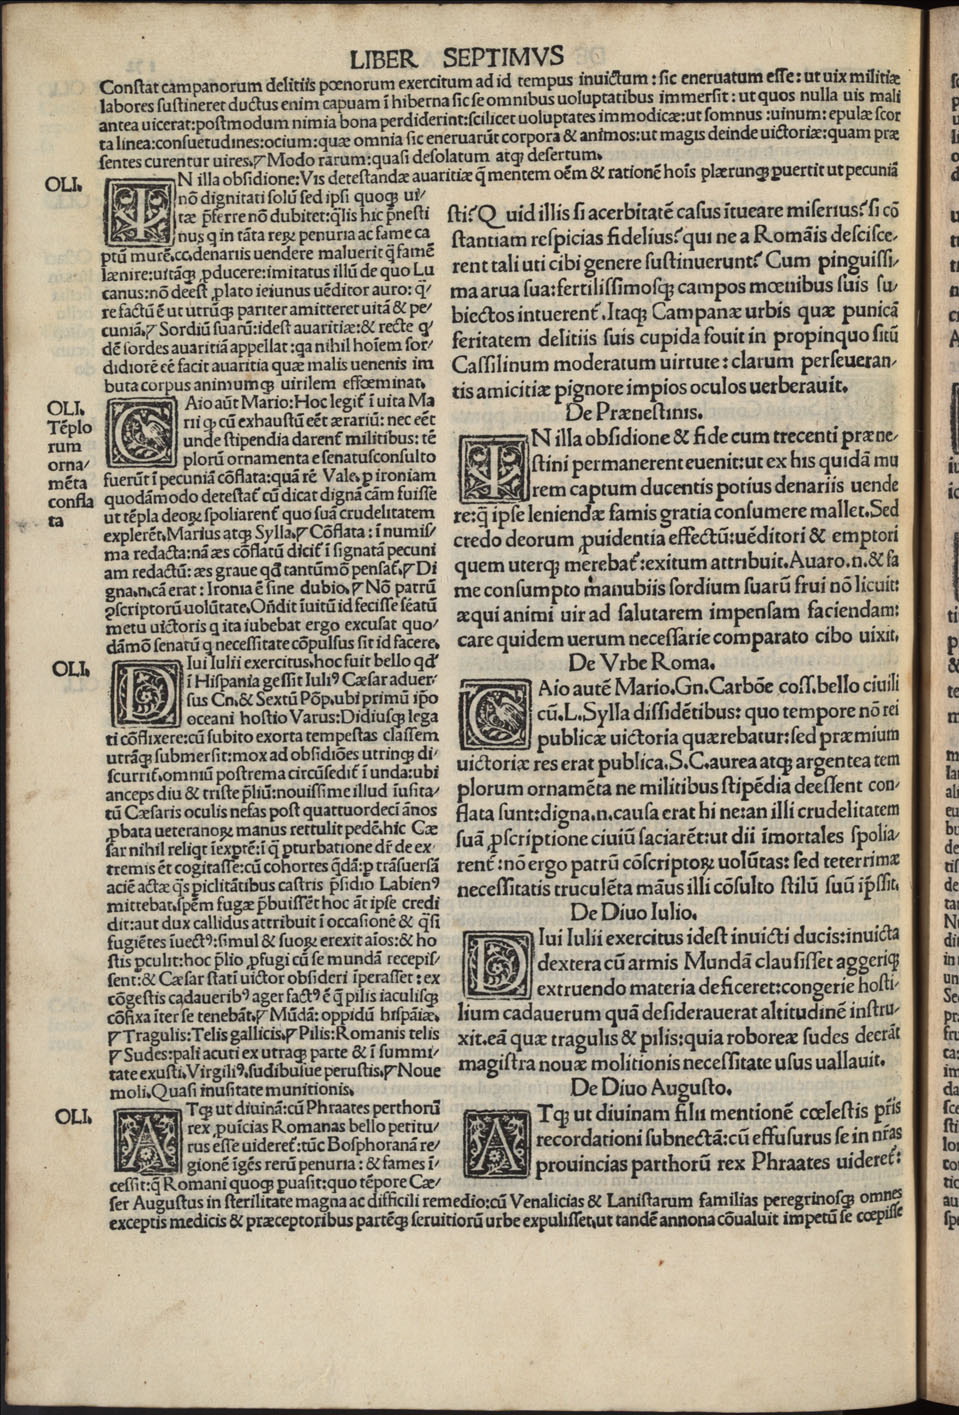 LIBER SEPTIMVS
Conſtat campanorum delitiis pœnorum exercitum ad id tempus inuictum : ſic eneruatum eſſe : ut uix militiæ
labores ſuſtineret ductus enim capuam ī hiberna ſic ſe omnibus uoluptatibus immerſit : ut quos nulla uis mali
antea uicerat:poſtmodum nimia bona perdiderint:ſcilicet uoluptates immodicæ:ut ſomnus :uinum: epulæ ſcor
ta linea:conſuetudines:ocium:quæ omnia ſic eneruarūt corpora & animos:ut magis deinde uictoriæ:quam præ
ſentes curentur uires. Modo rarum:quaſi deſolatum atqꝫ deſertum.
OLI.
IN illa obſidione:Vis deteſtandæ auaritiæ q̄ mentem oēm & rationē hoīs plærunqꝫ puertit ut pecuniā
nō dignitati ſolū ſed ipſi quoqꝫ ui/
tæ p̄ferre nō dubitet:qlis hic p̄neſti
nus q in tāta reꝝ penuria ac fame ca
ptū murē.cc.denariis uendere maluerit q̄ famē
lænire:uitāqꝫ ꝓducere:imitatus illū de quo Lu
canus:nō deeſt ꝓlato ieiunus uēditor auro: q/
re factū ē ut utrūqꝫ pariter amitteret uitā & pe/
cuniā. Sordiū ſuarū:ideſt auaritiæ:& recte q/
dē ſordes auaritiā appellat:qa nihil hoīem ſor/
didiorē eē facit auaritia quæ malis uenenis im
buta corpus animumqꝫ uirilem effœminat.
OLI.
Tēplo
rum
orna/
mēta
confla
ta
CAio aūt Mario: Hoc legit̄ ī uita Ma
rii ꝙ cū exhauſtū eēt ærariū: nec eēt
unde ſtipendia darent̄ militibus: tē
plorū ornamenta e ſenatuſconſulto
fuerūt ī pecuniā cōflata:quā rē Vale. p ironiam
quodāmodo deteſtat̄ cū dicat dignā cām fuiſſe
ut tēpla deoꝝ ſpoliarent̄ quo ſuā crudelitatem
explerēt. Marius atqꝫ Sylla. Cōflata : ī numiſ/
ma redacta:nā æs cōflatū dicit̄ ī ſignatā pecuni
am redactū: æs graue qđ tantūmō penſat̄. Di
gna.n.cā erat : Ironia ē ſine dubio. Nō patrū
ꝯſcriptorū uolūtate. Oñdit īuitū id feciſſe ſēatū
metu uictoris q ita iubebat ergo excuſat quo/
dāmō ſenatū q neceſſitate cōpulſus ſit id facere.
OLI.
DIui Iulii exercitus.hoc fuit bello qđ
ī Hiſpania geſſit Iuliꝰ Cæſar aduer/
ſus Cn.& Sextū Pōp.ubi primū ip̄o
oceani hoſtio Varus: Didiuſqꝫ lega
ti cōflixere:cū ſubito exorta tempeſtas claſſem
utrāqꝫ ſubmerſit:mox ad obſidiōes utrinqꝫ di/
ſcurrit̄.omniū poſtrema circūſedit̄ ī unda:ubi
anceps diu & triſte p̄liū:nouiſſime illud iuſita/
tū Cæſaris oculis nefas poſt quattuordecī ānos
ꝓbata ueteranoꝝ manus rettulit pedē.hic Cæ
ſar nihil reliqt īexptē:ī q̄ pturbatione dr̄ de ex/
tremis ēt cogitaſſe:cū cohortes qdā:p trāſuerſā
aciē actæ qs piclitātibus caſtris p̄ſidio Labienꝰ
mittebat.ſpēm fugæ p̄buiſſēt hoc āt ipſe credi
dit:aut dux callidus attribuit ī occaſionē & q̄ſi
fugiētes īuectꝰ:ſimul & ſuoꝝ erexit aīos:& ho
ſtis pculit:hoc p̄lio ꝓfugi cū ſe mundā recepiſ/
ſent:& Cæſar ſtati uictor obſideri īperaſſet : ex
cōgeſtis cadaueribꝰ ager factꝰ ē q̄ pilis iaculiſqꝫ
cōfixa iter ſe tenebāt. Mūdā: oppidū hiſpāiæ.
Tragulis: Telis gallicis. Pilis: Romanis telis
Sudes: pali acuti ex utraqꝫ parte & ī ſummi/
tate exuſti. Virgiliꝰ. ſudibuſue peruſtis. Noue
moli. Quaſi inuſitate munitionis.
OLI.
ATqꝫ ut diuinā:cū Phraates perthorū
rex ꝓuīcias Romanas bello petitu/
rus eſſe uideret̄:tūc Boſphoranā re/
gionē īgēs rerū penuria : & fames ī/
ceſſit:q̄ Romani quoqꝫ ꝑuaſit:quo tēpore Cæ/
ſer Auguſtus in ſterilitate magna ac difficili remedio:cū Venalicias & Laniſtarum familias peregrinoſqꝫ omnes
exceptis medicis & præceptoribus partēqꝫ ſeruitiorū urbe expuliſſet.ut tandē annona cōualuit impetū ſe cœpiſſe
ſti? Quid illis ſi acerbitatē caſus ītueare miſerius? ſi cō
ſtantiam reſpicias fidelius? qui ne a Romāis deſciſce/
rent tali uti cibi genere ſuſtinuerunt? Cum pinguiſſi/
ma arua ſua:fertiliſſimoſqꝫ campos mœnibus ſuis ſu/
biectos intuerent̄. Itaqꝫ Campanæ urbis quæ punicā
feritatem delitiis ſuis cupida fouit in propinquo ſitū
Caſſilinum moderatum uirtute: clarum perſeueran/
tis amicitiæ pignore impios oculos uerberauit.
De Præneſtinis.
IN illa obſidione & fide cum trecenti præne/
ſtini permanerent euenit:ut ex his quidā mu
rem captum ducentis potius denariis uende
re:q̄ ipſe leniendæ famis gratia conſumere mallet. Sed
credo deorum ꝓuidentia effectū:uēditori & emptori
quem uterqꝫ merebat̄:exitum attribuit. Auaro.n.& fa
me conſumpto manubiis ſordium ſuarū frui nō licuit:
æqui animi uir ad ſalutarem impenſam faciendam:
care quidem uerum neceſſarie comparato cibo uixit.
De Vrbe Roma.
CAio autē Mario. Gn. Carbōe coſſ. bello ciuili
cū. L. Sylla diſſidētibus: quo tempore nō rei
publicæ uictoria quærebatur:ſed præmium
uictoriæ res erat publica. S. C. aurea atqꝫ argentea tem
plorum ornamēta ne militibus ſtipēdia deeſſent con/
flata ſunt:digna.n.cauſa erat hi ne:an illi crudelitatem
ſuā ꝓſcriptione ciuiū ſaciarēt:ut dii īmortales ſpolia/
rent̄ :nō ergo patrū cōſcriptoꝝ uolūtas: ſed teterrimæ
neceſſitatis truculēta māus illi cōſulto ſtilū ſuū ip̄ſſit.
De Diuo Iulio.
DIui Iulii exercitus ideſt inuicti ducis:inuicta
dextera cū armis Mundā clauſiſſet aggeriqꝫ
extruendo materia deficeret:congerie hoſti/
lium cadauerum quā deſiderauerat altitudinē inſtru/
xit.eā quæ tragulis & pilis:quia roboreæ ſudes decrāt
magiſtra nouæ molitionis neceſſitate uſus uallauit.
De Diuo Auguſto.
ATqꝫ ut diuinam filii mentionē cœleſtis pr̄is
recordationi ſubnectā:cū effuſurus ſe in nr̄as
prouincias parthorū rex Phraates uideret̄: